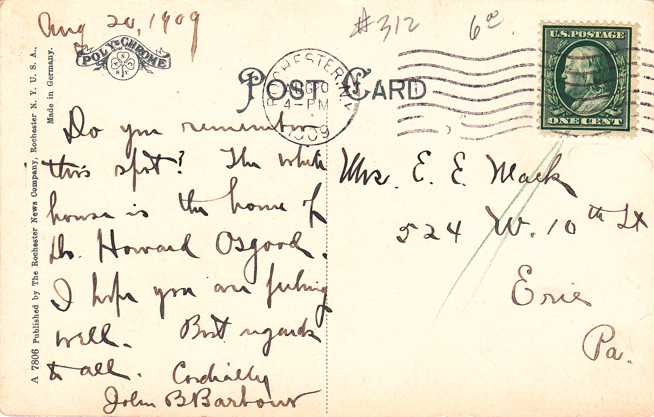 Aug 20, 1909
#312
6¢
POLY-CHROME
POST CARD
ROCHESTER, N.Y.
AUG 20
4-PM
1909
U.S. POSTAGE
ONE CENT
Do you remember
this spot? The white
house is the home of
Dr. Howard Osgood.
I hope you are feeling
well. Best regards
to all. Cordially
John B Barbour
Mrs. E. E. Mack
524 W. 10th St
Erie
Pa.
A 7806 Published by The Rochester News Company, Rochester N. Y. U. S. A.
Made in Germany.